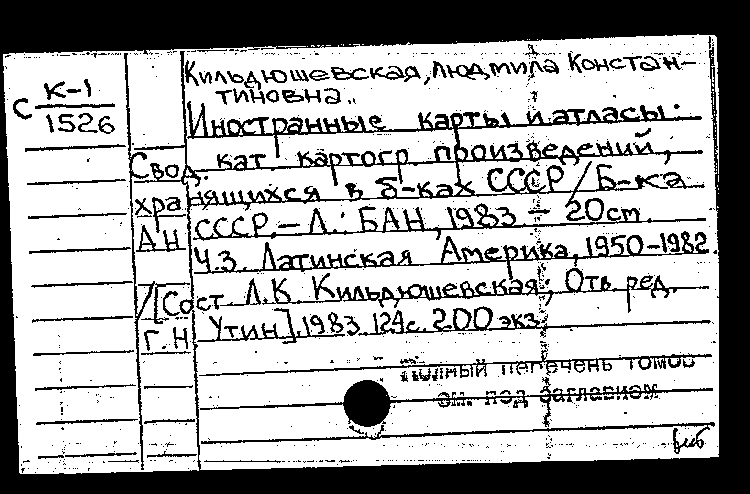 Кильдюшевская, Людмила Констан-
тиновна..
С К-1
1526
Иностранные карты и атласы:
Свод. кат картогр произведений,
хранящихся в б-ках СССР/Б-ка
АН СССР.- Л.: БАН, 1983 - 20 см.
Ч.3. Латинская Америка, 1950-1982
/[Сост. Л.К Кильдюшевская; Отв. ред.
Г.Н Утин]. 1983. 124с. 200 экз
Полный перечень томов
см. под заглавием